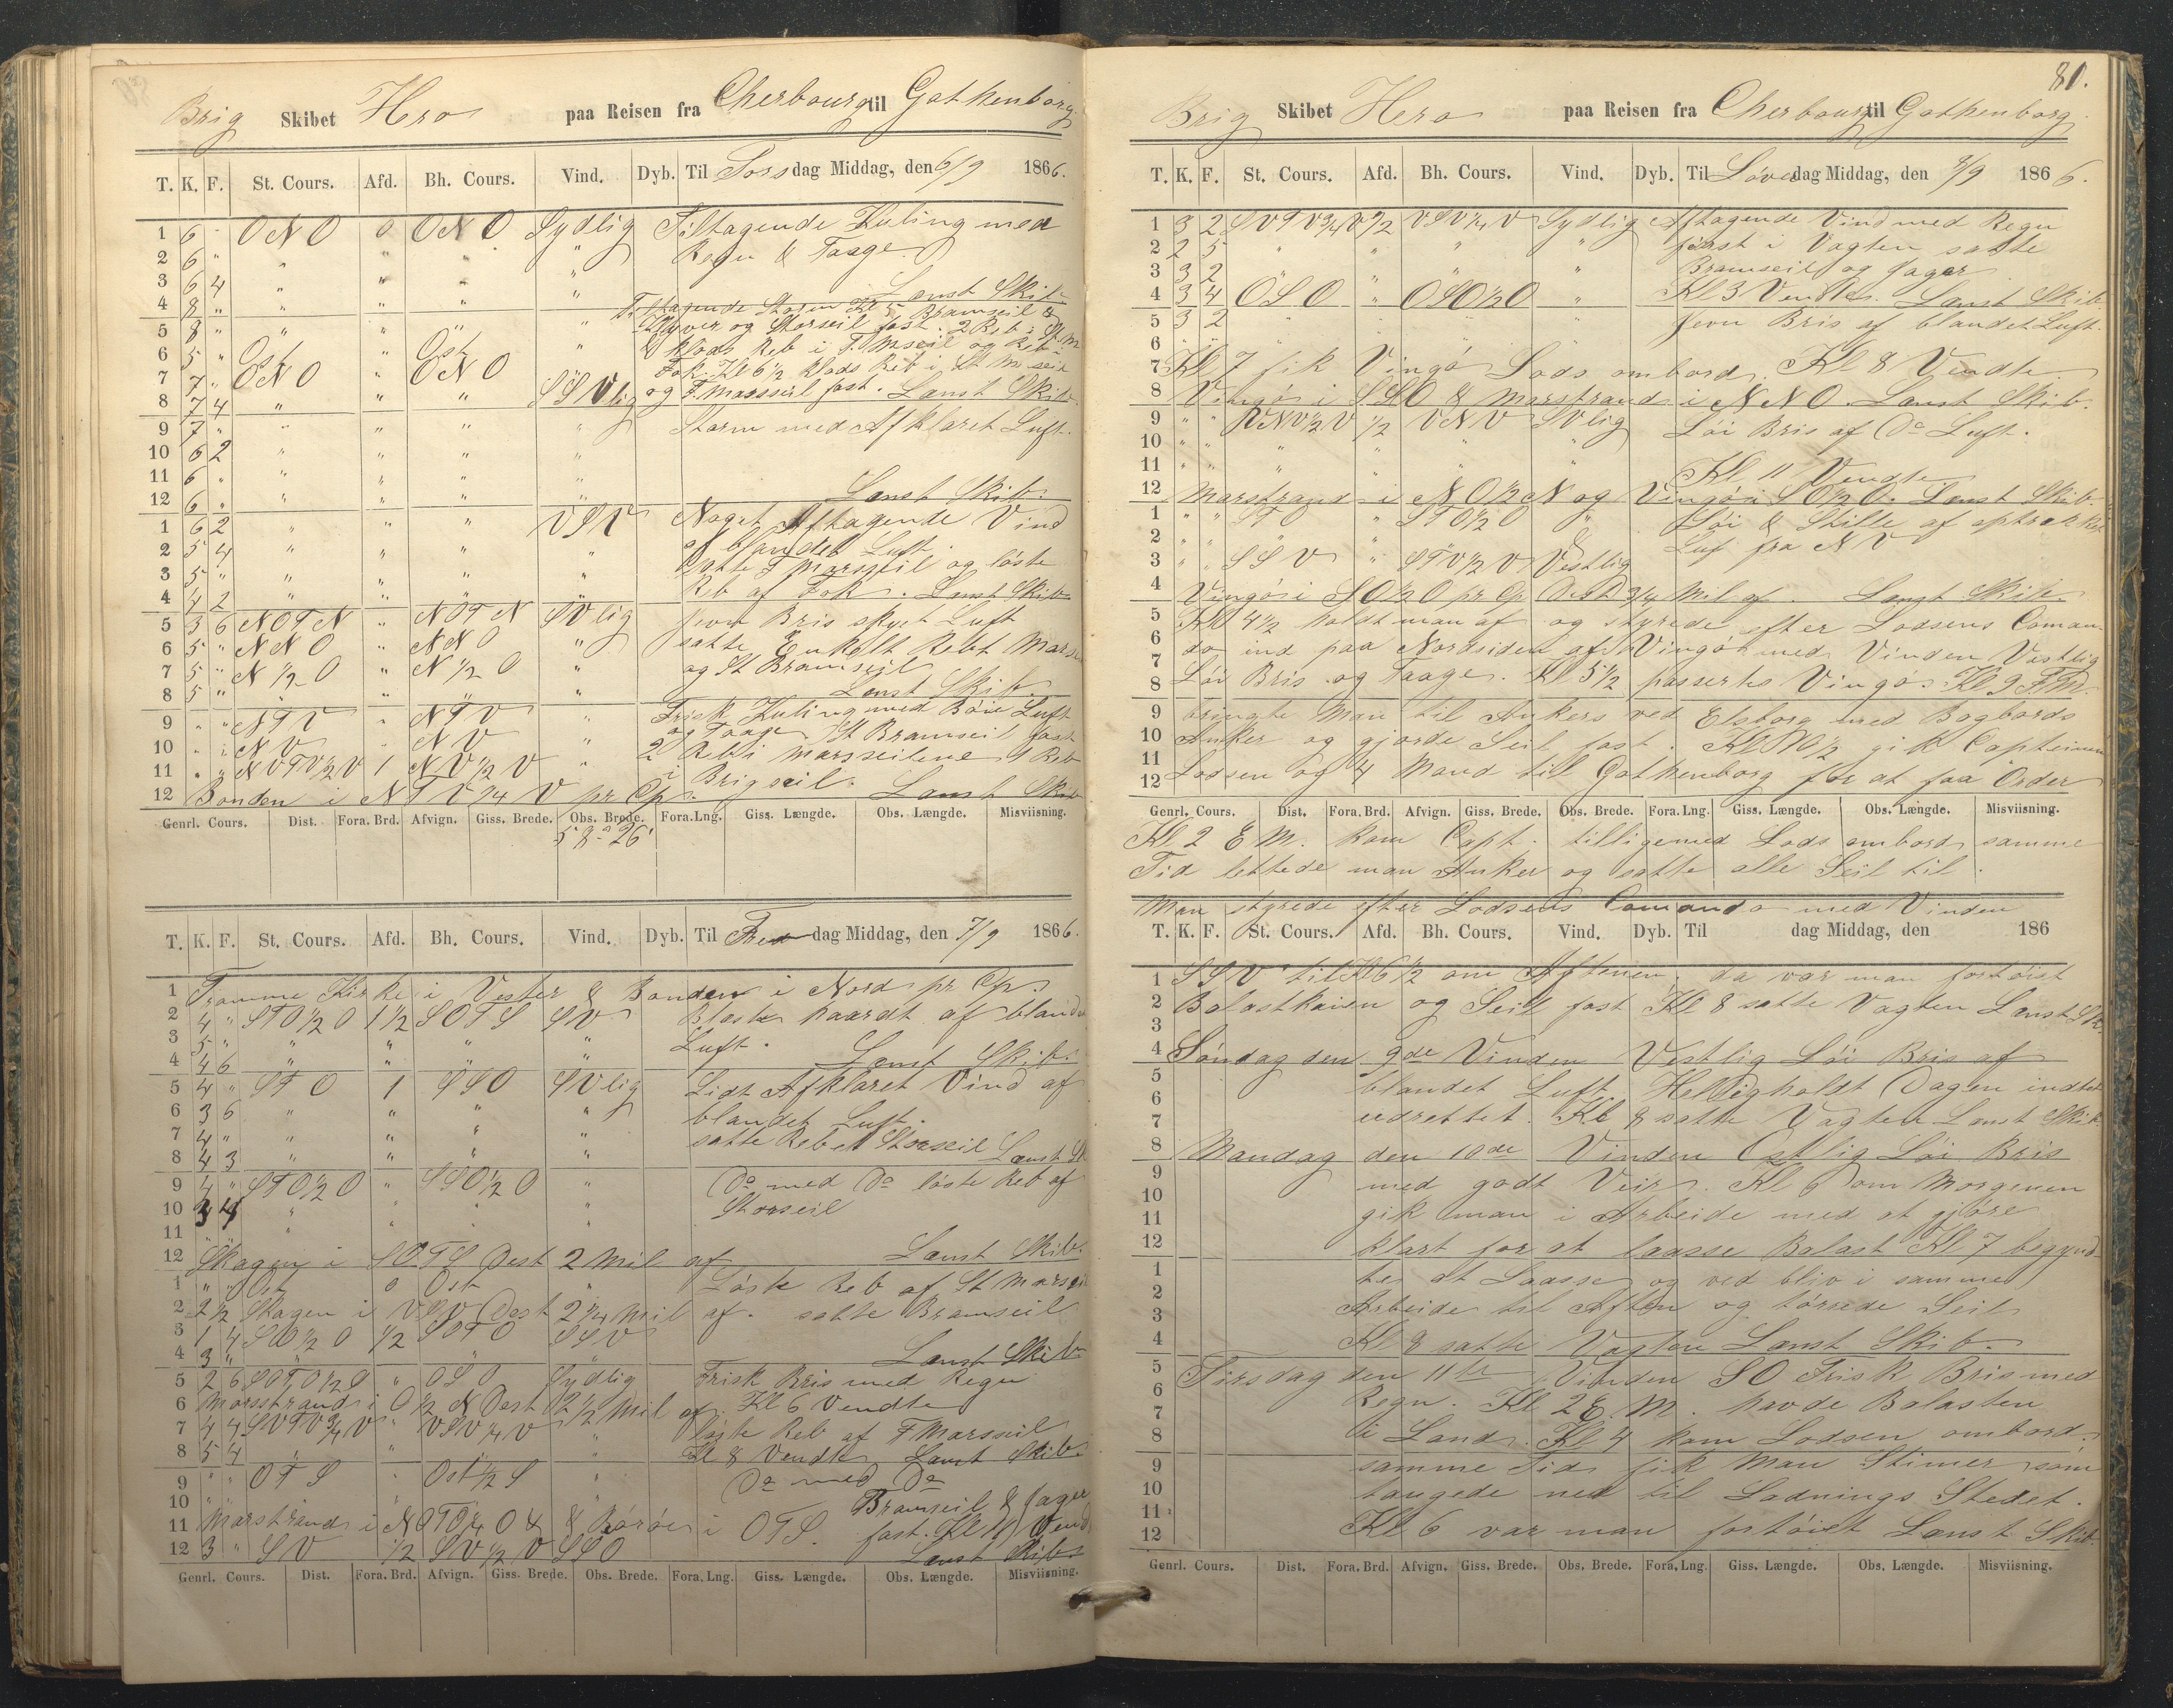 Brig Skibet Hero paa Reisen fra Cherbourg til Gothenborg
T. K. F. St. Cours. Afd. Bh. Cours. Vind. Dyb. Til Torsdag Middag, den 6/9 1866.
1 6 " ONO 0 ONO Sydlig Tiltagende Kuling med
2 6 " " " " " Regn & Taage.
3 6 4 " " " " Lænst Skib
4 8 " " " " Tiltagende Storm Kl 5 Bramseil &
5 8 " " " " " Klyver og Storseil fast. 2 Reb i St. M
6 5 " Ost " Ost " klods Reb i F. Mseil og Reb i
7 7 " ONO " ONO Fok. Kl 6½ klods Reb i St M seil
8 7 4 " " " SSVlig og F. Marsseil fast. Lænst Skib.
9 7 " " " " " Storm med Afklaret Luft.
10 6 2 " " " "
11 6 " " " " "
12 6 " " " " " Lænst Skib.
1 6 2 " " " VSV Noget Aftagende Vind
2 5 4 " " " " af blandet Luft
3 5 " " " " " F Marsseil og löste
4 4 2 " " " " Reb af Fok. Lænst Skib
5 3 6 NOTN " NOTN SVlig jevn Bris skyet Luft
6 5 " NNO " NNO " satte Enkelt Rebt Mars
7 5 " N½O " N½O " og St Bramseil
8 5 " " " " " Lænst Skib.
9 " " NTV " NTV " Frisk Kuling med Böie Luft
10 " " NV " NV " og Taage. St Bramseil fast
11 " " NVTV½V 1 NV½V " 2 Reb i Marsseilene 1 Reb
i Brigseil.
12 Bonden i NTV¼V pr Cps. Lænst Skib
Genrl. Cours. Dist. Fora. Brd. Afvign. Giss. Brede. Obs. Brede. Fora. Lng. Giss. Længde. Obs. Længde. Misviisning.
58° 26'
T. K. F. St. Cours. Afd. Bh. Cours. Vind. Dyb. Til Fredag Middag, den 7/9 1866.
1 Tromme Kirke i Vester & Bonden i Nord pr Cps
2 4 " STO½O 1½ SOTS SV Blæste haardt af blandet
3 5 " " " " " Luft.
4 4 6 " " " " Lænst Skib.
5 4 " STO 1 SSO SVlig Lidt Afklaret Vind af
6 3 6 " " " " blandet Luft.
7 4 " " " " " satte Rebet Storseil Lænst Sk
8 4 3 " " " "
9 4 " STO½O " SSO½O " Do med Do löste Reb af
10 3 4 " " " " Storseil
11 " "
12 Skagen i SOTS Dest 2 Mil af Lænst Skib.
1 " " Ost 0 Ost " Löste Reb af St Marsseil
2 2½ Skagen i VSV Dest 2¼ Mil af. satte Bramseil
3 1 4 SO½O ½ SOTO SSV
4 3 " " " " Lænst Skib
5 2 6 SOTO½S " OSO Sydlig Frisk Bris med Regn
6 Marsstrand i O½N Dest 2½ Mil af. Kl 6 Vendte
7 4 4 SVTV¾V " VSV¼V " löste Reb af F Marsseil
8 5 4 " " " " Kl 8 Vendte Lænst Skib
9 " " OTS " Ost½S " Do med Do
10 " " " " " Bramseil & Jager
11 Marstrand i NOTO¼O & i OTS. fast. Kl 11 Vend
12 3 " SV ½ SV½V SSO Lænst Skib
Genrl. Cours. Dist. Fora. Brd. Afvign. Giss. Brede. Obs. Brede. Fora. Lng. Giss. Længde. Obs. Længde. Misviisning.
81.
Brig Skibet Hero paa Reisen fra Cherbourg til Gothenborg
T. K. F. St. Cours. Afd. Bh. Cours. Vind. Dyb. Til Löverdag Middag, den 8/9 1866.
1 3 2 SVTV¾V ½ VSV¼V Sydlig Aftagende Vind med Regn
2 2 5 " " " " först i Vagten satte
3 3 2 " " " " Bramseil og Jager
4 3 4 OSO " OSO½O " Kl 3 Vendte. Lænst Skib
5 3 2 " " " " jevn Bris af blandet Luft.
6 " " " " " "
7 Kl 7 fik Vingö Lods ombord. Kl 8 Vendte.
8 Vingö i SSO & Marstrand i NNO. Lænst Skib.
9 " " VNV½V ½ VNV SVlig Löi Bris af Do Luft.
10 " " " " " "
11 " " " " " " Kl 11 Vendte
12 Marstrand i NO½N og Vingö i SO½O. Lænst Skib
1 " " STO " STO½O " Löi & Stille af optrækket
2 " " " " " & Luf fra NV
3 " " SSV " STV½V Vestlig
4 Vingö i SO½O pr Cp Dest ¾ Mil af. Lænst Skib.
5 Kl 4½ holdt man af og styrede efter Lodsens Coman
6 do ind paa Nordsiden af Vingö med Vinden Vestlig
7
8 Löi Bris og Taage. Kl 5½ passerte Vingö. Kl 9 F.M.
9 bringte Man til Ankers ved Elsborg med Bagbords
10 Anker og gjorde Seil fast. Kl 10½ gik Capteinen
11
12 Lodsen og 4 Mand til Gothenborg for at faa Order
Genrl. Cours. Dist. Fora. Brd. Afvign. Giss. Brede. Obs. Brede. Fora. Lng. Giss. Længde. Obs. Længde. Misviisning.
Kl 2 E.M. kom Capt. tilligemed Lods ombord samme
Tid lettede man Anker og satte alle Seil til.
Man styrede efter Lodsens Comando med Vinden
T. K. F. St. Cours. Afd. Bh. Cours. Vind. Dyb. Til dag Middag, den 186
1 SSV til Kl 6½ om Aftenen. da var man fortöiet
2 Balastkaien og Seil fast Kl 8 satte Vagten Lænst Sk.
3
4 Söndag den 9de Vinden Vestlig Löi Bris af
5 blandet Luft. Helligholdt Dagen indtet
6
7 udrettet. Kl 8 satte Vagten Lænst Skib
8 Mandag den 10de Vinden Ostlig Löi Bris
9 med godt Veir. Kl 6 om Morgenen
10
11 gik man i Arbeide med at gjöre
12 klart for at laasse Balast Kl 7 begynd
1 tes at Laasse og ved bliv i samme
2
3 Arbeide til Aften og törrede Seil
4 Kl 8 satte Vagten Lænst Skib.
5 Tirsdag den 11te Vinden SO Frisk Bris med
6 Regn. Kl 2 E.M. havde Balasten
7
8 i Land. Kl 4 kom Lodsen ombord.
9 samme Tid fik Man Stimer som
10 taugede ned til Ladnings Stedet.
11
12 Kl 6 var man fortöiet Lænst Skib.
Genrl. Cours. Dist. Fora. Brd. Afvign. Giss. Brede. Obs. Brede. Fora. Lng. Giss. Længde. Obs. Længde. Misviisning.